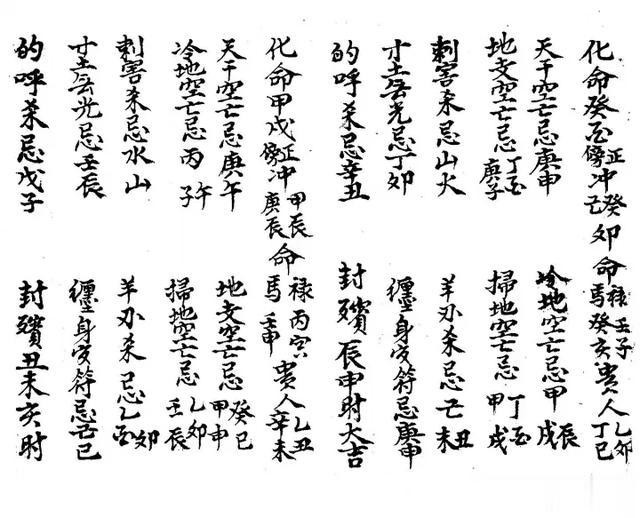 化命癸酉正冲癸卯 傍己卯命 禄壬子 馬癸亥 貴人乙卯丁巳
天干空亡忌庚申 冷地空亡忌甲辰戌
地支空亡忌丁酉庚子 掃地空亡忌丁酉甲戌
刺害杀忌山火 羊刃杀忌亡丑未
寸土無光忌丁卯 纏身灾符忌庚申
的呼杀忌辛丑 封殯辰申时大吉
化命甲戌正冲甲辰 傍庚辰命 禄丙寅 馬壬申 貴人乙丑辛未
天干空亡忌庚午 地支空亡忌癸巳甲申
冷地空亡忌丙午子 掃地空亡忌乙卯壬辰
刺害杀忌水山 羊刃杀忌乙卯酉
寸土無光忌壬辰 纏身灾符忌亡巳
的呼杀忌戊子 封殯丑未亥时